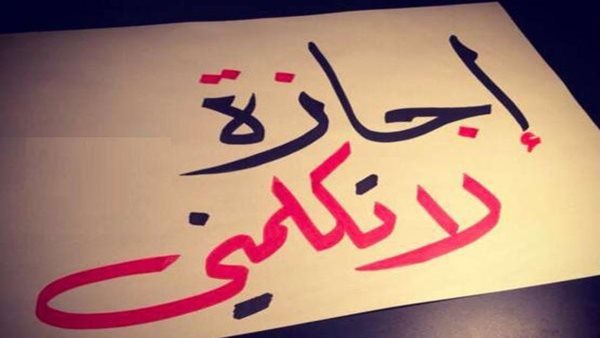 إجازة
لا تكلمني